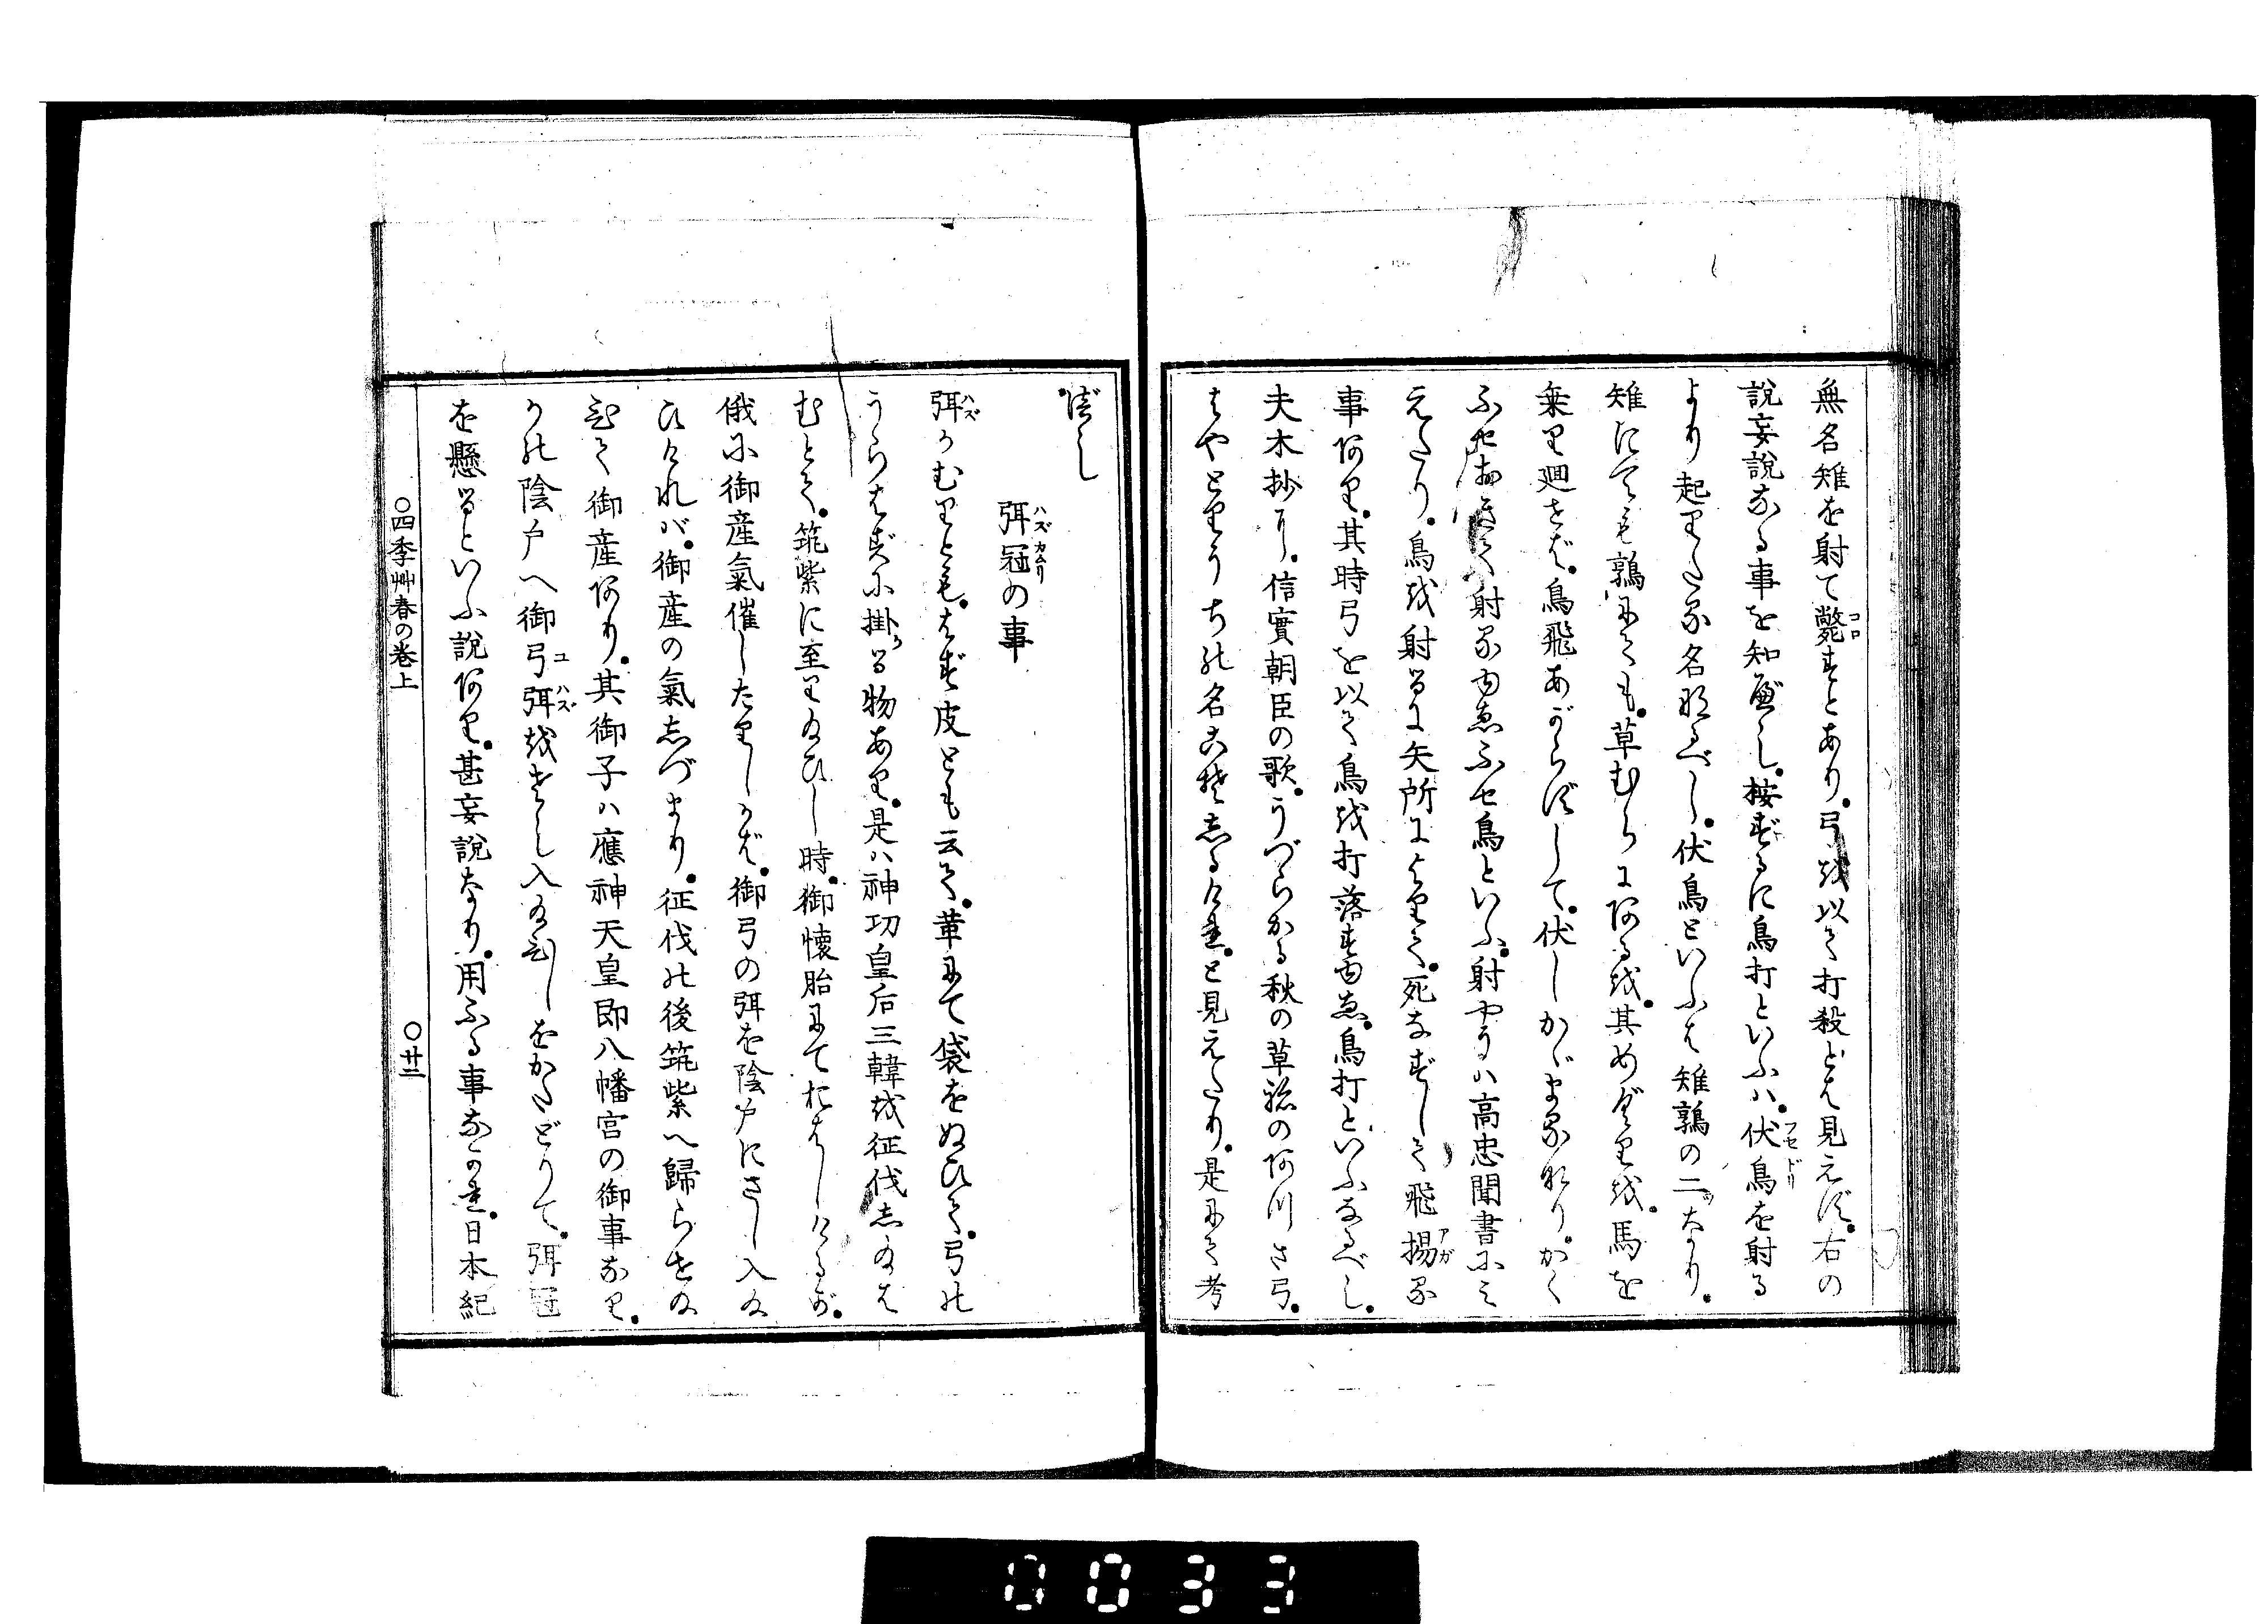 無名雉を射て斃すとあり。弓を以て打殺とは見えず。右の
説妄説なる事を知べし。按ずるに鳥打といふハ。伏鳥を射る
より起りたる名なるべし。伏鳥といふは雉鶉の二ツなり。
雉にても鶉にても。草むらにある を。其めぐりを。馬を
乗り廻せば。鳥飛あがらずして。伏しかゞまるなり。かく
ふせ置きて射るゆゑふせ鳥といふ。射やうハ高忠聞書にみ
えたり。鳥を射るに矢所によりて。死なずして飛揚る
事あり。其時弓を以て鳥を打落すゆゑ。鳥打といふなるべし。
夫木抄ニ。信實朝臣の歌。うづらかる秋の草 の あ つさ弓。
はやとりうちの名こそしるけれ。と見えたり。是にて考
べし
弭冠の事
弭かむりとも。はず皮とも云て。革にて袋をぬひて。弓の
うらはずに掛る物あり。是ハ神功皇后三韓を征伐し給は
むとて。筑紫に至り給ひし時。御懐胎にておはしけるが。
俄に御産氣催したりしかば。御弓の弭を陰戸にさし入給
ひければ。御産の氣しづまり。征伐の後筑紫へ歸らせ給
ひて御産あり。其御子ハ應神天皇即八幡宮の御事なり。
かの陰戸へ御弓弭をさし入給ひしをかたどりて。弭冠
を懸るといふ説あり。甚妄説なり。用ふる事なかれ。日本紀
○四季艸春の巻上
○廿二
コロ
フセドリ
アガ
ハズカムリ
ハズ
ユハズ
0033